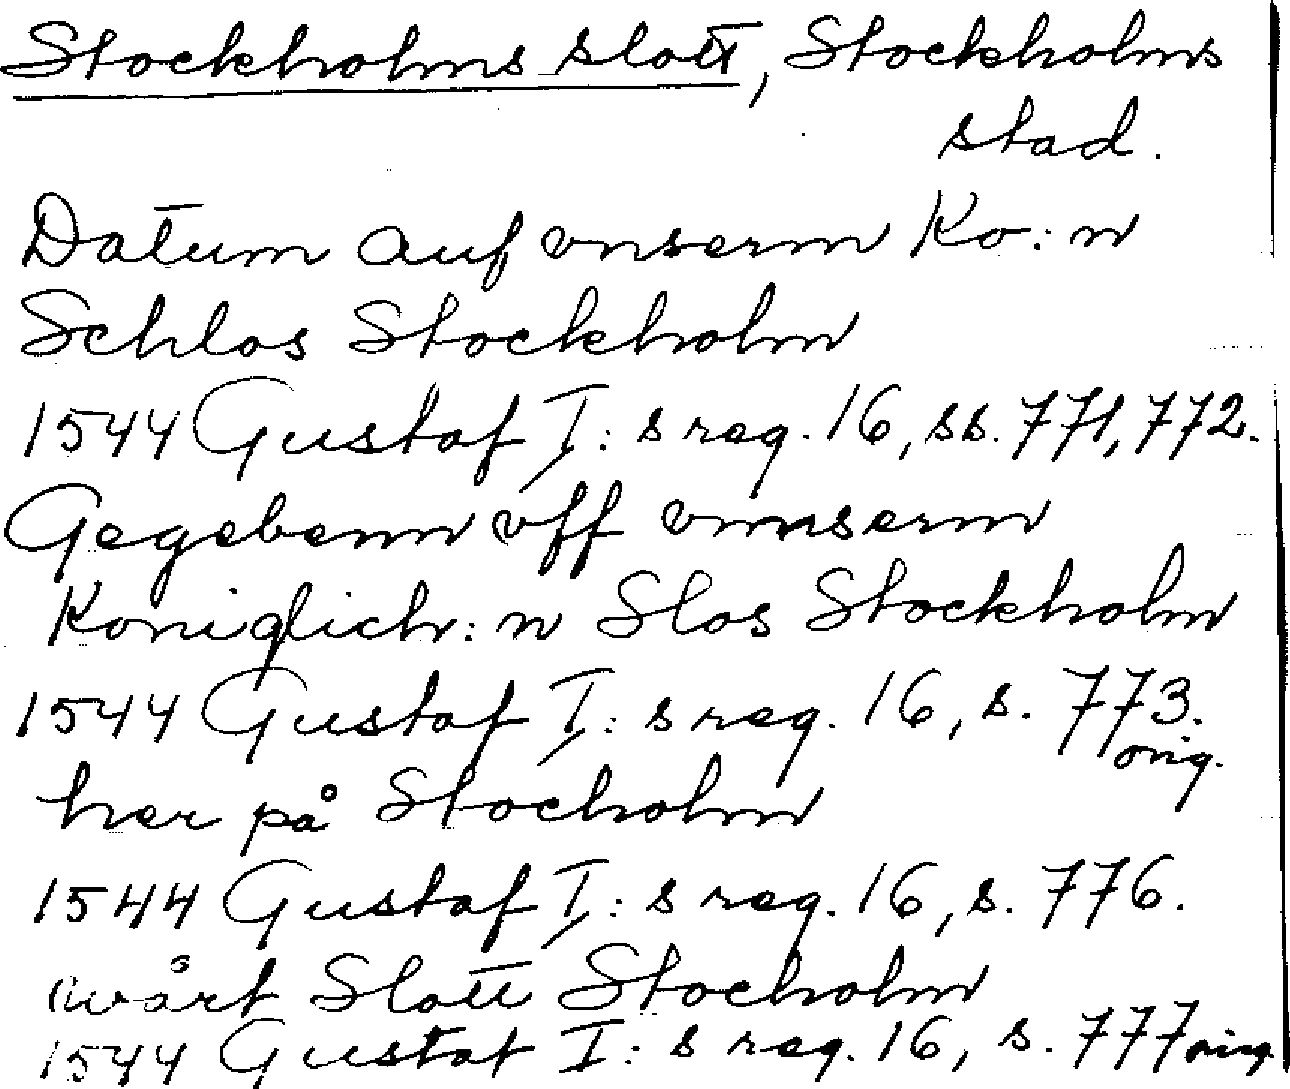 Stockholms slott, Stockholms
stad.
Datum auf vnserm Ko:n
Schlos Stockholm
1544 Gustaf I:s reg. 16, ss. 771, 772.
Gegebenn vff vnnserm
Koniglich:n Slos Stockholm
1544 Gustaf I:s reg. 16, s. 773.
orig.
her på Stocholm
1544 Gustaf I:s reg. 16, s. 776.
wårt Slott Stocholm
1544 Gustaf I:s reg. 16, s. 777 orig.